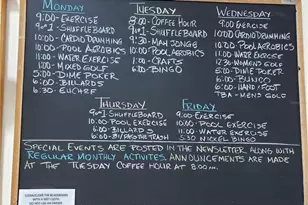 MONDAY
9:00 - EXERCISE
9:+1 SHUFFLEBOARD
10:00 - CARDIO DRUMMING
10:00 - POOL AEROBICS
11:00 - WATER EXERCISE
12:00 - MIXED GOLF
5:00 - DIME POKER
6:00 - BILLARDS
6:30 - EUCHRE
TUESDAY
8:00 - COFFEE HOUR
9:+1 - SHUFFLEBOARD
9:30 - MAH JONGG
10:00 POOL AEROBICS
1:00 - CRAFTS
6:30 - BINGO
WEDNESDAY
9:00 EXERCISE
10:00 CARDIO DRUMMING
10:00 POOL AEROBICS
11:00 WATER EXERCISE
12:30 WOMEN'S GOLF
5:00 - DIME POKER
6:00
6:00 - HAND/FOOT
TBA - MENS GOLF
THURSDAY
9:+1 SHUFFLEBOARD
10:00 - POOL EXERCISE
6:00 - BILLARDS
6:00 -
FRIDAY
9:00 - EXERCISE
10:00 - POOL EXERCISE
11:00 - WATER EXERCISE
5:30 NICKEL BINGO
SPECIAL EVENTS ARE POSTED IN THE NEWSLETTER ALONG WITH
REGULAR MONTHLY ACTIVITES. ANNOUNCEMENTS ARE MADE
AT THE TUESDAY COFFEE HOUR AT 8:00 AM.